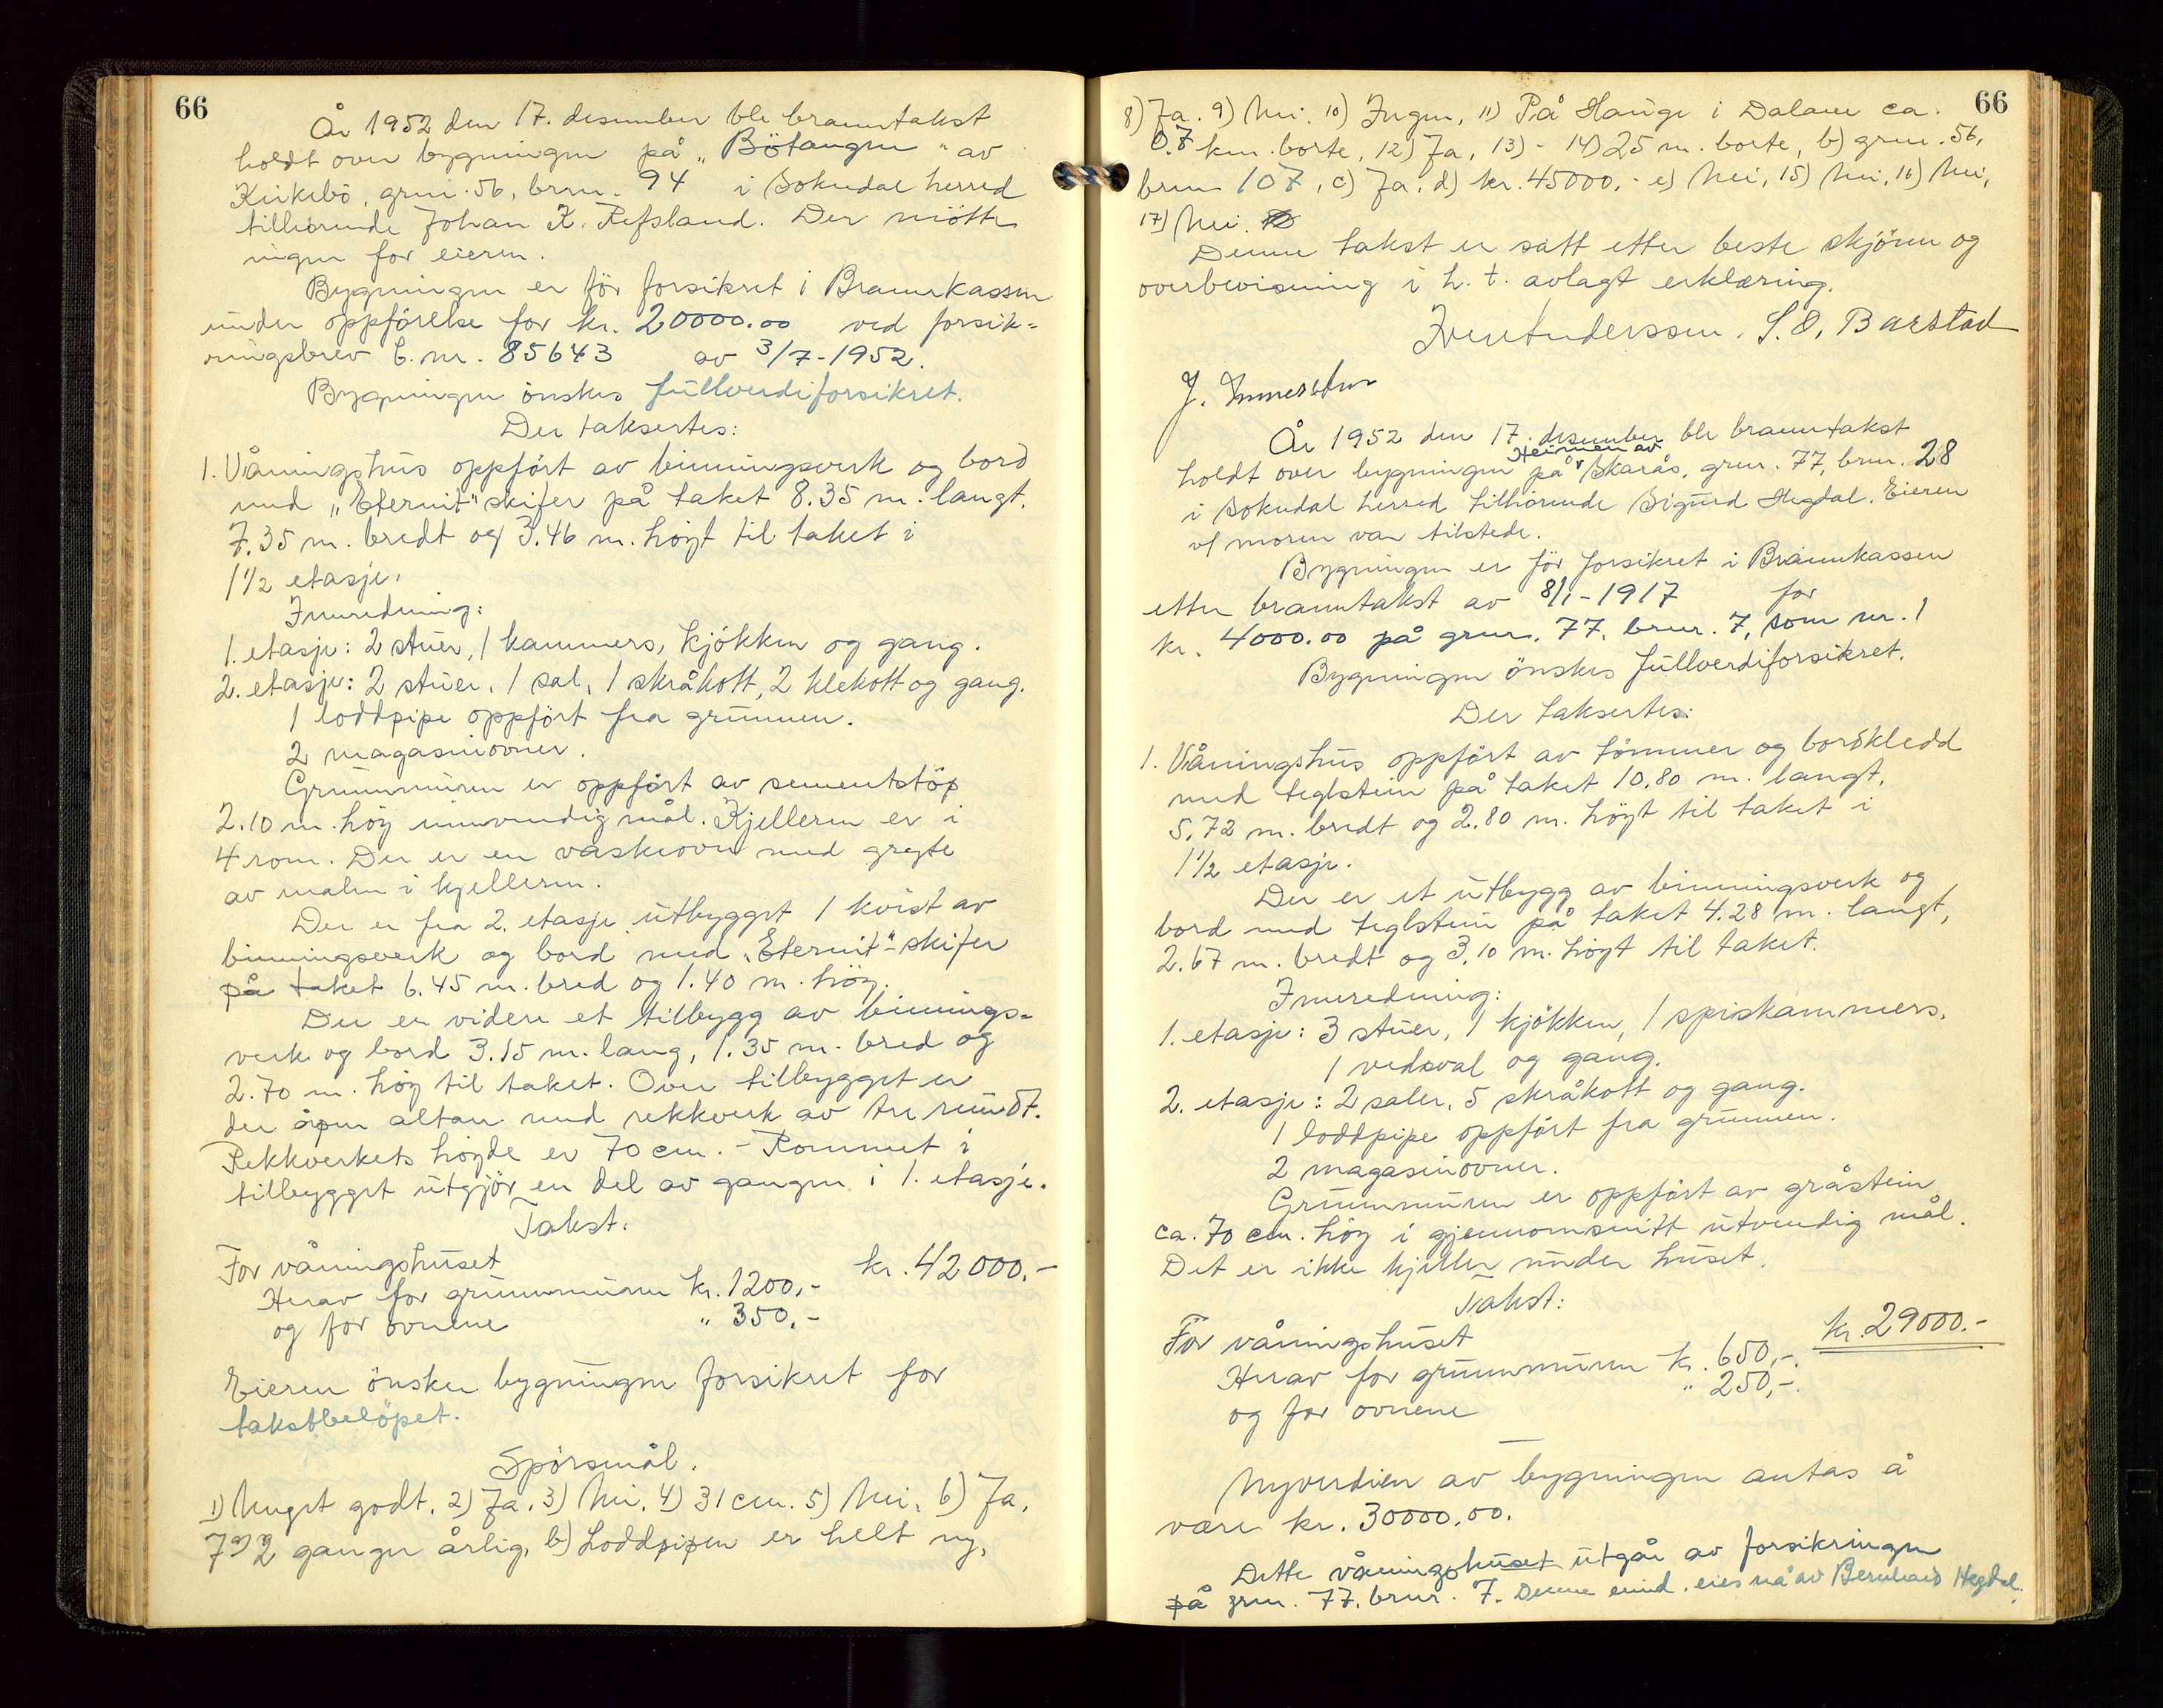 66
År 1952 den 17. desember ble branntakst
holdt over bygningen på „Bötangen" av
Kirkebö, grnr. 56, brnr. 94 i Sokndal herred
tilhörende Johan K. Refsland. Der mötte
ingen for eieren.
Bygningen er för forsikret i Brannkassen
under oppförelse for kr. 20000.00 ved forsik-
ringsbrev b.nr. 85643 av 3/7-1952.
Bygningen önskes fullverdiforsikret.
Der taksertes:
1. Våningshus oppfört av binningsverk og bord
med „Eternit" skifer på taket 8.35 m. langt,
7.35 m. bredt og 3.46 m. höyt til taket i
1 1/2 etasje.
Innredning:
1. etasje: 2 stuer, 1 kammers, kjökken og gang.
2. etasje: 2 stuer, 1 sal, 1 skråkott, 2 klekott og gang.
1 loddpipe oppfört fra grunnen.
2 magasinovner.
Grunnmuren er oppfört av sementstöp
2.10 m. höy innvendig mål. Kjelleren er i
4 rom. Der er en vaskeovn med gryte
av malm i kjelleren.
Der er fra 2. etasje utbygget 1 kvist av
binningsverk og bord med „Eternit"-skifer
på taket 6.45 m. bred og 1.40 m. höy.
Der er videre et tilbygg av binnings-
verk og bord 3.15 m. lang, 1.35 m. bred og
2.70 m. höy til taket. Over tilbygget er
der åpen altan med rekkverk av tre rundt.
Rekkverkets höyde er 70 cm. - Rommet i
tilbygget utgjör en del av gangen i 1. etasje.
Takst:
For våningshuset kr. 42000.-
Herav for grunnmuren kr. 1200,-
og for ovnene " 350.-
Eieren önsker bygningen forsikret for
takstbelöpet.
Spörsmål.
1) Meget godt, 2) Ja, 3) Nei, 4) 31 cm. 5) Nei, 6) Ja,
7 a) 2 ganger årlig, b) Loddpipen er helt ny,
66
8) Ja. 9) Nei, 10) Ingen, 11) På Hauge i Dalane ca.
0.7 km. borte, 12) Ja, 13) - 14) 25 m. borte, b) grnr. 56,
brnr 107, c) Ja, d) kr. 45000.- e) Nei, 15) Nei, 16) Nei,
17) Nei.
Denne takst er satt etter beste skjönn og
overbevisning i h. t. avlagt erklæring.
Anderssen. S. O. Barstad
J.
År 1952 den 17. desember ble branntakst
Heimen av
holdt over bygningen på Skarås, grnr. 77, brnr. 28
i Sokndal herred tilhörende Sigurd Hegdal. Eieren
v/ moren var tilstede.
Bygningen er för forsikret i Brannkassen
etter branntakst av 8/1-1917 for
kr. 4000.00 på grnr. 77, brnr. 7, som nr. 1
Bygningen önskes fullverdiforsikret.
Der taksertes:
1. Våningshus oppfört av tömmer og bordkledd
med teglstein på taket 10.80 m. langt,
5.72 m. bredt og 2.80 m. höyt til taket i
1 1/2 etasje.
Der er et utbygg av binningsverk og
bord med teglstein på taket 4.28 m. langt,
2.67 m. bredt og 3.10 m. höyt til taket.
Innredning:
1. etasje: 3 stuer, 1 kjökken, 1 spiskammers,
1 vedsval og gang.
2. etasje: 2 saler, 5 skråkott og gang.
1 loddpipe oppfört fra grunnen.
2 magasinovner.
Grunnmuren er oppfört av gråstein
ca. 70 cm. höy i gjennomsnitt utvendig mål.
Det er ikke kjeller under huset.
Takst:
For våningshuset kr. 29000.-
Herav for grunnmuren kr. 650,-.
og for ovnene " 250,-.
Nyverdien av bygningen antas å
være kr. 30000.00.
Dette våningshuset utgår av forsikringen
på grnr. 77, brnr. 7. Denne eiend. eies nå av Bernhard Hegdal.